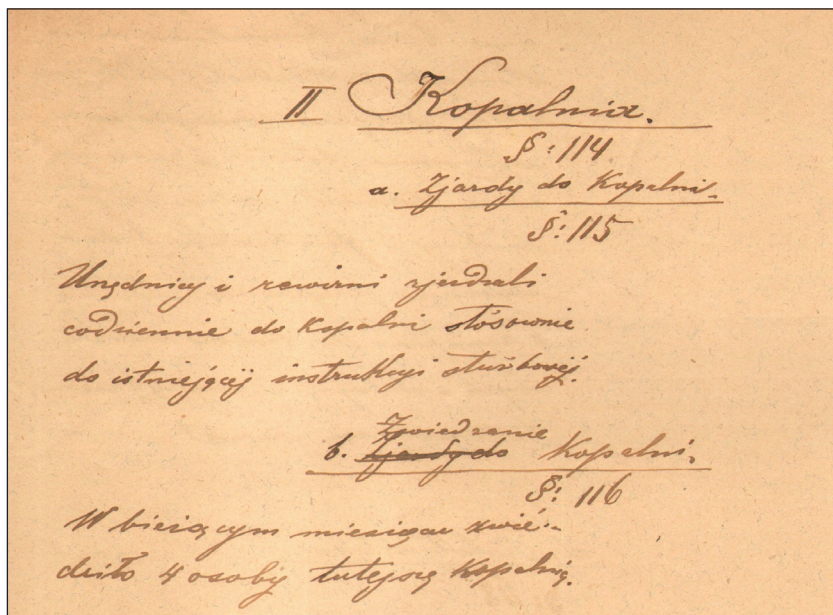 II Kopalnia.
§: 114
a. Zjazdy do Kopalni.
§: 115
Urzędnicy i rewirni zjeżdżali
codziennie do Kopalni stósownie
do istniejącej instrukcyi służbowéj.
Zwiedzanie
b. Zjazdy do Kopalni.
§: 116
W bieżącym miesiącu zwié-
dziło 4 osoby tutejszą Kopalnię.